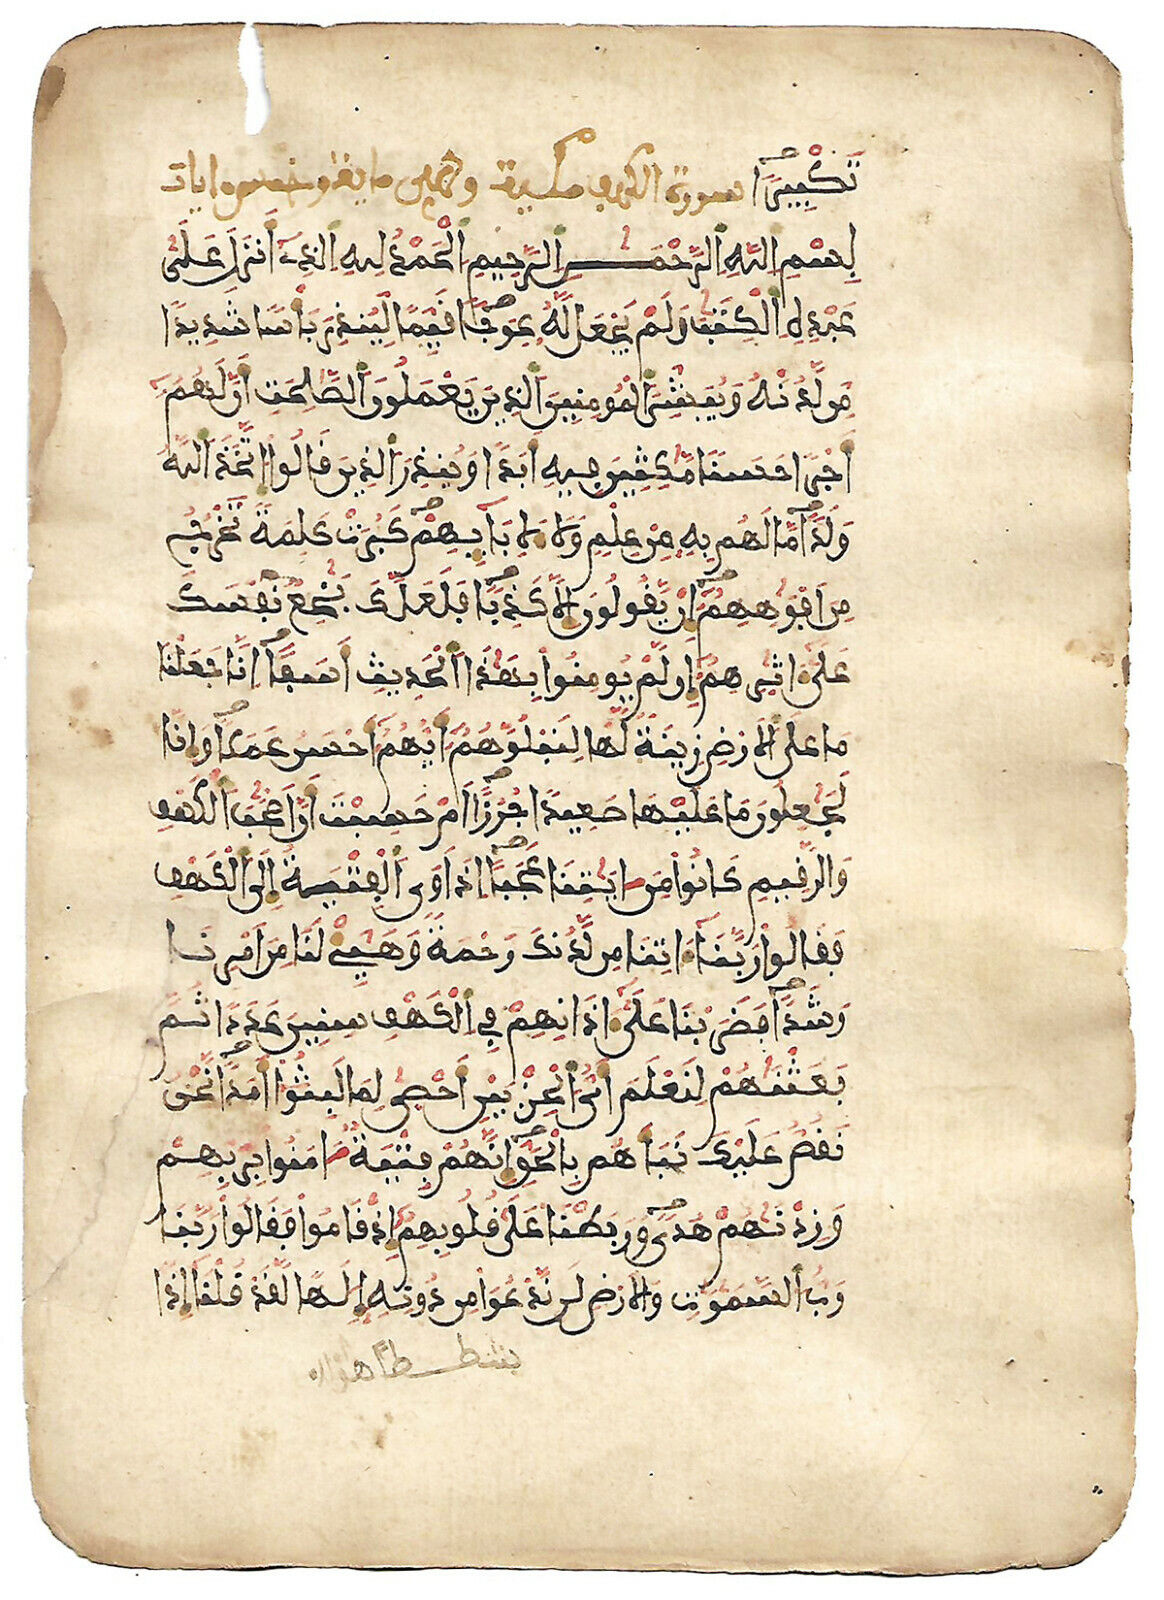 تَكْبِيرًا سورة الكهف مكية وهي ماية وخمس ايات
بِسْمِ اِللَّهِ اِلرَّحْمَٰنِ اِلرَّحِيمِ اِلْحَمْدُ لِلهِ اِلذِے أَنزَلَ عَلَىٰ
عَبْدِهِ اِلْكِتَٰبَ وَلَمْ يَجْعَل لَّهُۥ عِوَجًا قَيِّمًا لِّيُنذِرَ بَأْسًا شَدِيدًا
مِّن لَّدُنْهُ وَيُبَشِّرَ اَلْمُومِنِينَ اَلذِينَ يَعْمَلُونَ اَلصَّٰلِحَٰتِ أَنَّ لَهُمُۥٓ
أَجْرًا حَسَنًا مَّٰكِثِينَ فِيهِ أَبَدًا وَيُنذِرَ اَلذِينَ قَالُوا۟ اُتَّخَذَ اَللَّهُ
وَلَدًا مَّا لَهُم بِهِۦ مِنْ عِلْمٍ وَلَا لِأَبَآئِهِمْ كَبُرَتْ كَلِمَةً تَخْرُجُ
مِنَ اَفْوَٰهِهِمُۥٓ إِنْ يَّقُولُونَ إِلَّا كَذِبًا فَلَعَلَّكَ بَٰخِعٌ نَّفْسَكَ
عَلَىٰٓ ءَاثَٰرِهِمُۥٓ إِن لَّمْ يُومِنُوا۟ بِهَٰذَا اَلْحَدِيثِ أَسَفًا اِنَّا جَعَلْنَا
مَا عَلَى اَلَارْضِ زِينَةً لَّهَا لِنَبْلُوَهُمُۥٓ أَيُّهُمُۥٓ أَحْسَنُ عَمَلًا وَإِنَّا
لَجَٰعِلُونَ مَا عَلَيْهَا صَعِيدًا جُرُزًا اَمْ حَسِبْتَ أَنَّ أَصْحَٰبَ اَلْكَهْفِ
وَالرَّقِيمِ كَانُوا۟ مِنَ ايَٰتِنَا عَجَبًا اِذَ اَوَى اَلْفِتْيَةُ إِلَى اَلْكَهْفِ
فَقَالُوا۟ رَبَّنَآ ءَاتِنَا مِن لَّدُنكَ رَحْمَةً وَهَيِّئْ لَنَا مِنَ اَمْرِنَا
رَشَدًا فَضَرَبْنَا عَلَىٰٓ ءَاذَانِهِمْ فِے اِلْكَهْفِ سِنِينَ عَدَدًا ثُمَّ
بَعَثْنَٰهُمْ لِنَعْلَمَ أَيُّ اُلْحِزْبَيْنِ أَحْصَىٰ لِمَا لَبِثُوٓا۟ أَمَدًا نَّحْنُ
نَقُصُّ عَلَيْكَ نَبَأَهُم بِالْحَقِّ إِنَّهُمْ فِتْيَةٌ ءَامَنُوا۟ بِرَبِّهِمْ
وَزِدْنَٰهُمْ هُدًى وَرَبَطْنَا عَلَىٰ قُلُوبِهِمُۥٓ إِذْ قَامُوا۟ فَقَالُوا۟ رَبُّنَا
رَبُّ اُلسَّمَٰوَٰتِ وَالَارْضِ لَن نَّدْعُوَا۟ مِن دُونِهِۦٓ إِلَٰهًا لَّقَدْ قُلْنَآ إِذًا
شططا هؤلاء